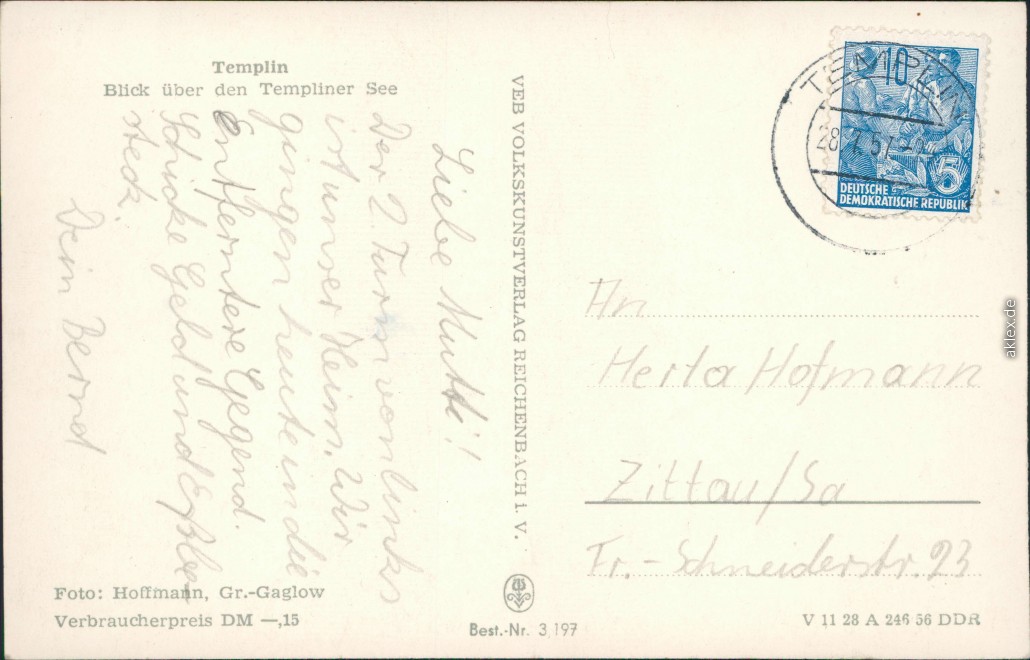 Templin
Blick über den Templiner See
Liebe Mutti!
Der 2. Turm von links
ist unser Heim. Wir
gingen heute in die
Entferntere Gegend.
Schicke Geld und Eßbe
steck.
Dein Bernd
Foto: Hoffmann, Gr.-Gaglow
Verbraucherpreis DM —,15
VEB VOLKSKUNSTVERLAG REICHENBACH I. V.
Best.-Nr. 3,197
TEMPLIN
28. 7. 57
10
5
DEUTSCHE
DEMOKRATISCHE REPUBLIK
An
Herta Hofmann
Zittau/Sa
Fr.-Schneiderstr. 23
V 11 28 A 246 56 DDR
aklex.de